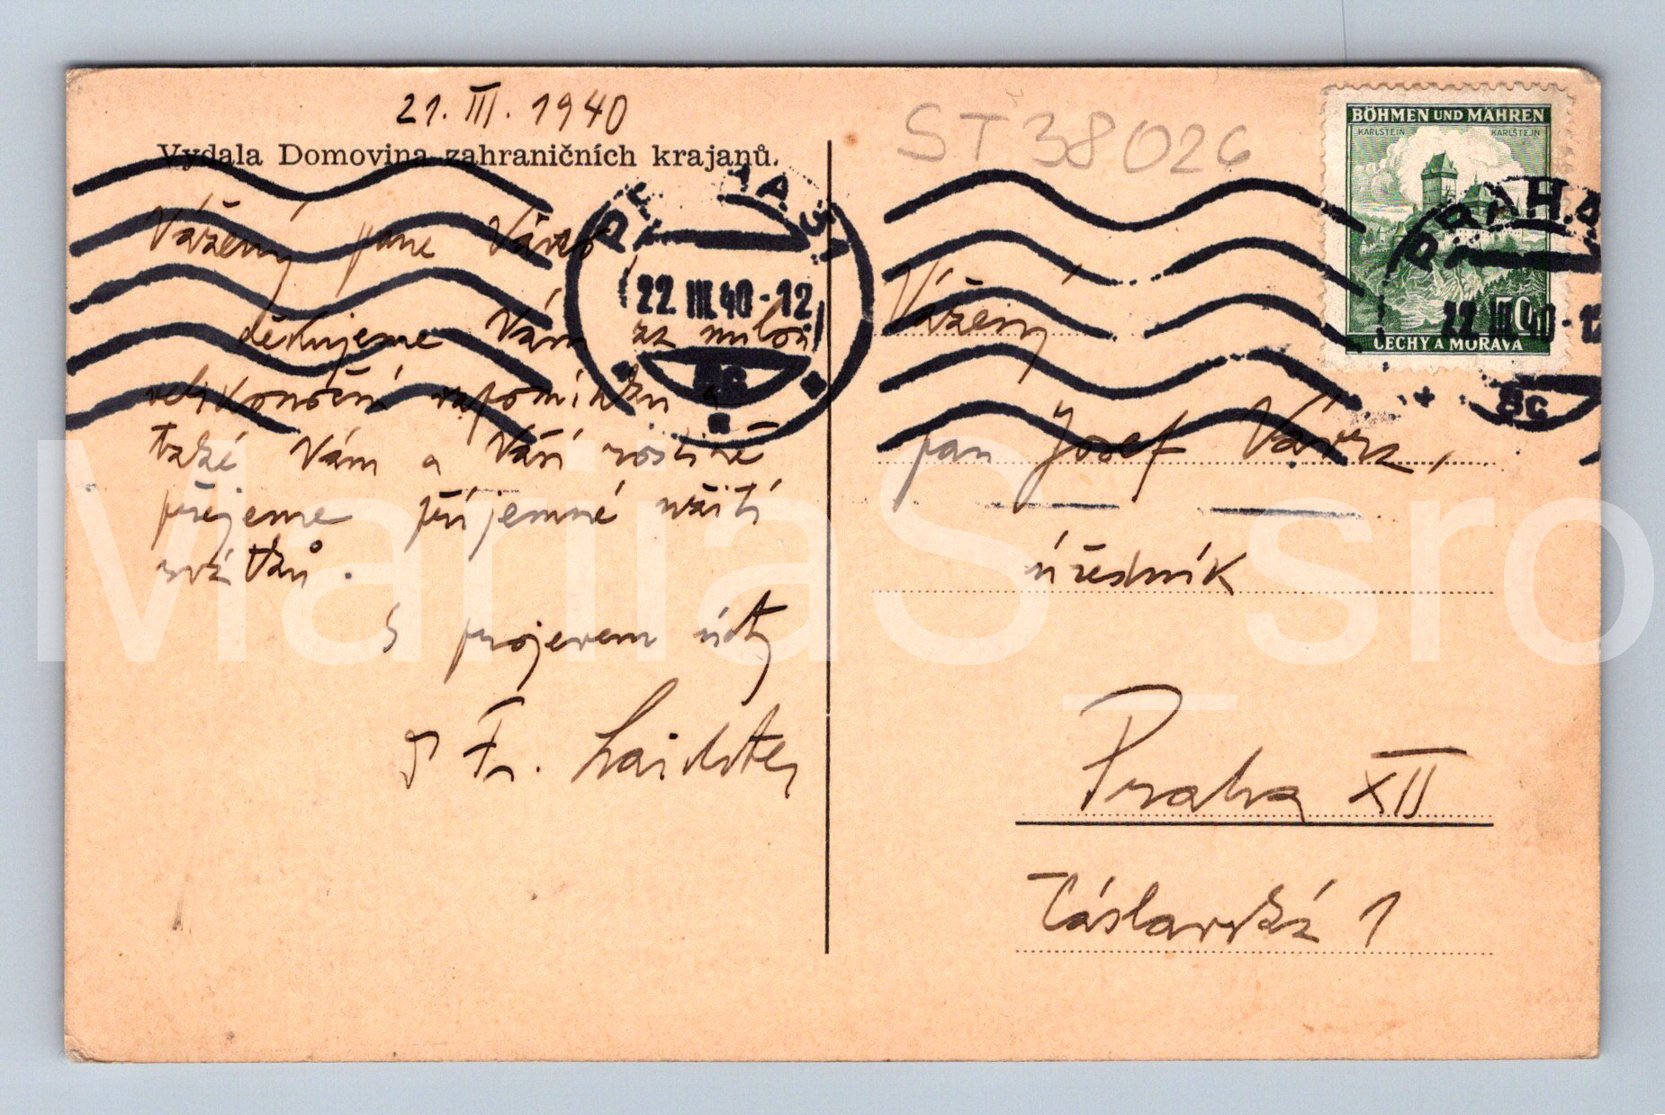 21. III. 1940
Vydala Domovina zahraničních krajanů.
Vážený pane Vávro
děkujeme Vám za milou
velikonoční vzpomínku a
také Vám a Vaší rodině
přejeme příjemné užití
svátků.
S projevem úcty
Fr.
22 III. 40 - 12
8c
ST 38026
BÖHMEN UND MÄHREN
KARLSTEIN KARLŠTEJN
ČECHY A MORAVA
PRAHA
22 III 40 - 12
8c
Vážený
pan Josef Vávra,
úředník
Praha XII
Čáslavská 1
MarijaS_sro